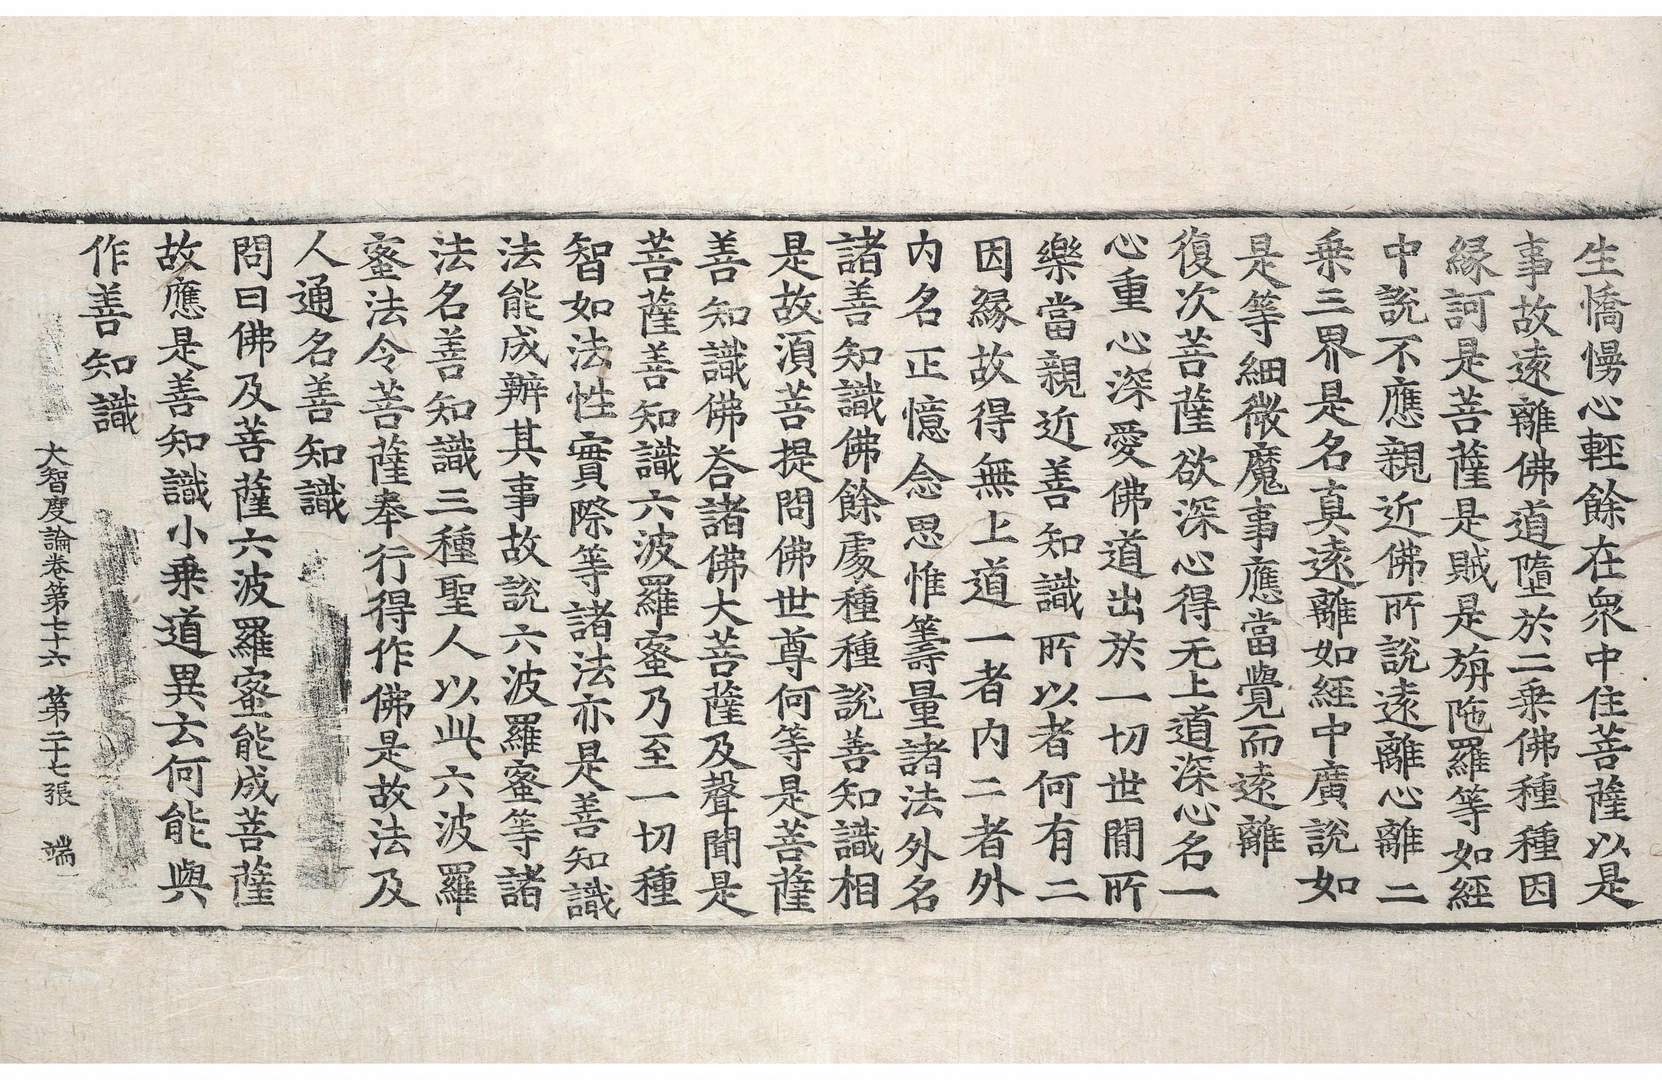 生憍慢心輕餘在衆中住菩薩以是
事故遠離佛道墮於二乗佛種種因
緣訶是菩薩是賊是旃陁羅等如經
中說不應親近佛所說遠離心離二
乗三界是名真遠離如經中廣說如
是等細微魔事應當覺而遠離
復次菩薩欲深心得无上道深心名一
心重心深愛佛道出於一切世閒所
樂當親近善知識所以者何有二
因緣故得無上道一者內二者外
內名正憶念思惟籌量諸法外名
諸善知識佛餘處種種說善知識相
是故湏菩提問佛世尊何等是菩薩
善知識佛荅諸佛大菩薩及聲聞是
菩薩善知識六波羅蜜乃至一切種
智如法性實際等諸法亦是善知識
法能成辦其事故說六波羅蜜等諸
法名善知識三種聖人以此六波羅
蜜法令菩薩奉行得作佛是故法及
人通名善知識
問曰佛及菩薩六波羅蜜能成菩薩
故應是善知識小乗道異云何能與
作善知識
大智度論卷第七十六 第二十七張 端